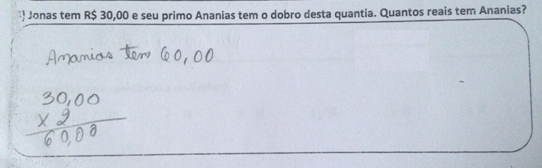 ) Jonas tem R$ 30,00 e seu primo Ananias tem o dobro desta quantia. Quantos reais tem Ananias?
Ananias tem 60,00
30,00
x 2
60,00